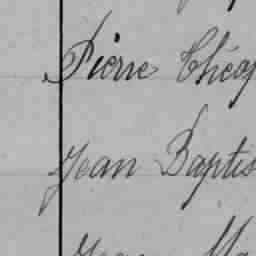 Pierre Théop
Jean Baptis